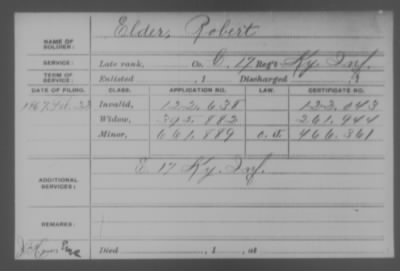 NAME OF SOLDIER: Elder, Robert
SERVICE: Late rank, Co. C, 17 Reg't Ky. Inf.
TERM OF SERVICE: Enlisted , 1 Discharged , 1
DATE OF FILING. CLASS. APPLICATION NO. LAW. CERTIFICATE NO.
1867, 22 Invalid, 122.638 122.043
Widow, 392.882 261.944
Minor, 661.889 466.361
ADDITIONAL SERVICES: E. 17 Ky. Inf.
REMARKS:
Died , 1 , at